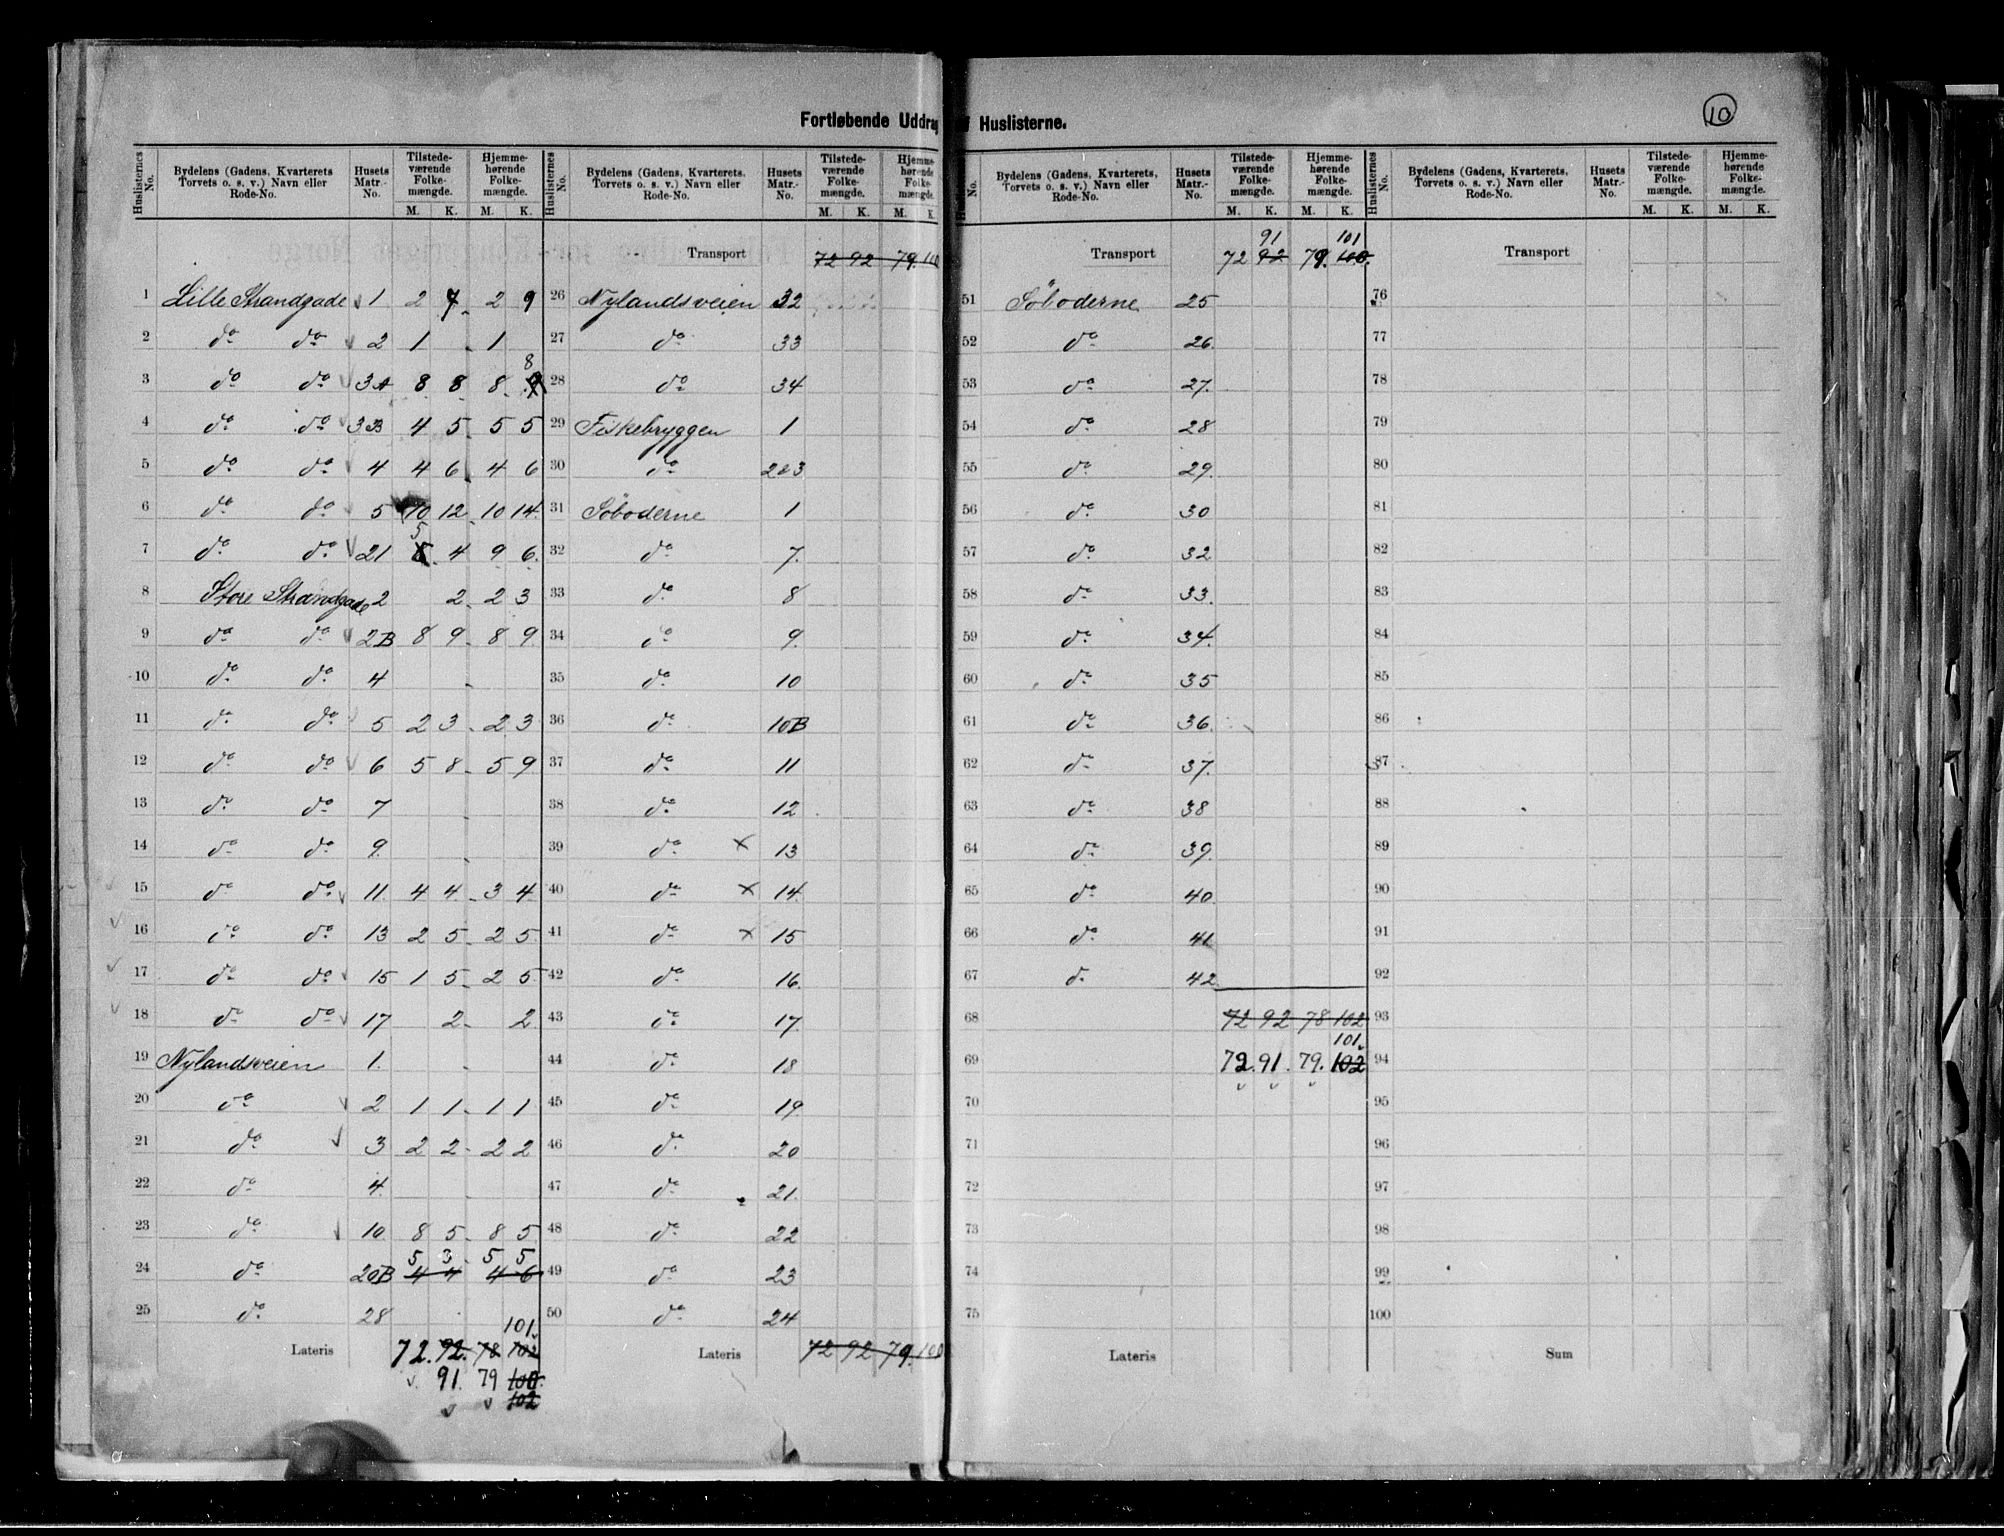 10
Fortløbende Uddrag af Huslisterne.
Huslisternes No. | Bydelens (Gadens, Kvarterets, Torvets o. s. v.) Navn eller Rode-No. | Husets Matr.-No. | Tilstedeværende Folkemængde. M. K. | Hjemmehørende Folkemængde. M. K.
1 Lille Strandgade 1 2 7 2 9
2 do do 2 1 1
3 do do 3A 8 8 8 9 8
4 do do 3B 4 5 5 5
5 do do 4 4 6 4 6
6 do do 5 10 12 10 14
7 do do 21 5 4 9 6
8 Store Strandgade 2 2 2 3
9 do do 2B 8 9 8 9
10 do do 4
11 do do 5 2 3 2 3
12 do do 6 5 8 5 9
13 do do 7
14 do do 9.
15 do do 11. 4 4 3 4
16 do do 13 2 5 2 5
17 do do 15 1 5 2 5
18 do do 17 2 2
19 Nylandsveien 1.
20 do 2 1 1 1 1
21 do 3 2 2 2 2
22 do 4.
23 do 10 8 5 8 5
5 3 5 5
24 do 20B 4 4 4 6
25 do 28
101.
Lateris 72. 92. 78 102
91. 79 100.
102
Huslisternes No. | Bydelens (Gadens, Kvarterets, Torvets o. s. v.) Navn eller Rode-No. | Husets Matr.-No. | Tilstedeværende Folkemængde. M. K. | Hjemmehørende Folkemængde. M. K.
Transport 72 92 79. 100
26 Nylandsveien 32
27 do 33
28 do 34
29 Fiskebryggen 1
30 do 2&3
31 Söboderne 1
32 do 7.
33 do 8
34 do 9.
35 do 10
36 do 10B
37 do 11
38 do 12
39 do x 13
40 do x 14.
41 do x 15
42 do 16.
43 do 17.
44 do 18
45 do 19.
46 do 20
47 do 21.
48 do 22
49 do 23
50 do 24
Lateris 72 92 79. 100
No. | Bydelens (Gadens, Kvarterets, Torvets o. s. v.) Navn eller Rode-No. | Husets Matr.-No. | Tilstedeværende Folkemængde. M. K. | Hjemmehørende Folkemængde. M. K.
91 101
Transport 72 92 79. 100.
51 Söboderne 25
52 do 26.
53 do 27.
54 do 28
55 do 29.
56 do 30
57 do 32
58 do 33.
59 do 34.
60 do 35
61 do 36.
62 do 37.
63 do 38
64 do 39.
65 do 40
66 do 41.
67 d. 42
68 72 92 78 102
101.
69 72. 91. 79. 102
70
71
72
73
74
75
Lateris
Huslisternes No. | Bydelens (Gadens, Kvarterets, Torvets o. s. v.) Navn eller Rode-No. | Husets Matr.-No. | Tilstedeværende Folkemængde. M. K. | Hjemmehørende Folkemængde. M. K.
Transport
76
77
78
79
80
81
82
83
84
85
86
87
88
89
90
91
92
93
94
95
96
97
98
99
100
Sum